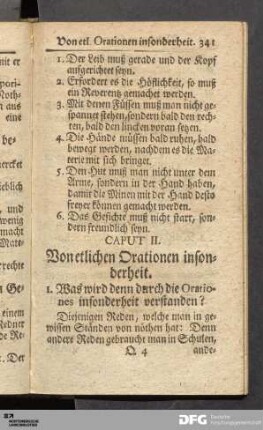 Von etl. Orationen insonderheit. 341
1. Der Leib muß gerade und der Kopf
aufgerichtet seyn.
2. Erfordert es die Höflichkeit, so muß
ein Reverentz gemachet werden.
3. Mit denen Füssen muß man nicht ge-
spannet stehen, sondern bald den rech-
ten, bald den lincken voran setzen.
4. Die Hände müssen bald ruhen, bald
beweget werden, nachdem es die Ma-
terie mit sich bringet.
5. Den Hut muß man nicht unter dem
Arme, sondern in der Hand haben,
damit die Minen mit der Hand desto
freyer können gemacht werden.
6. Das Gesichte muß nicht starr, son-
dern freundlich seyn.
CAPUT II.
Von etlichen Orationen inson-
derheit.
1. Was wird denn durch die Oratio-
nes insonderheit verstanden?
Diejenigen Reden, welche man in ge-
wissen Ständen von nöthen hat: Denn
andere Reden gebrauchet man in Schulen,
Q 4 ande-
DFG Deutsche
Forschungsgemeinschaft